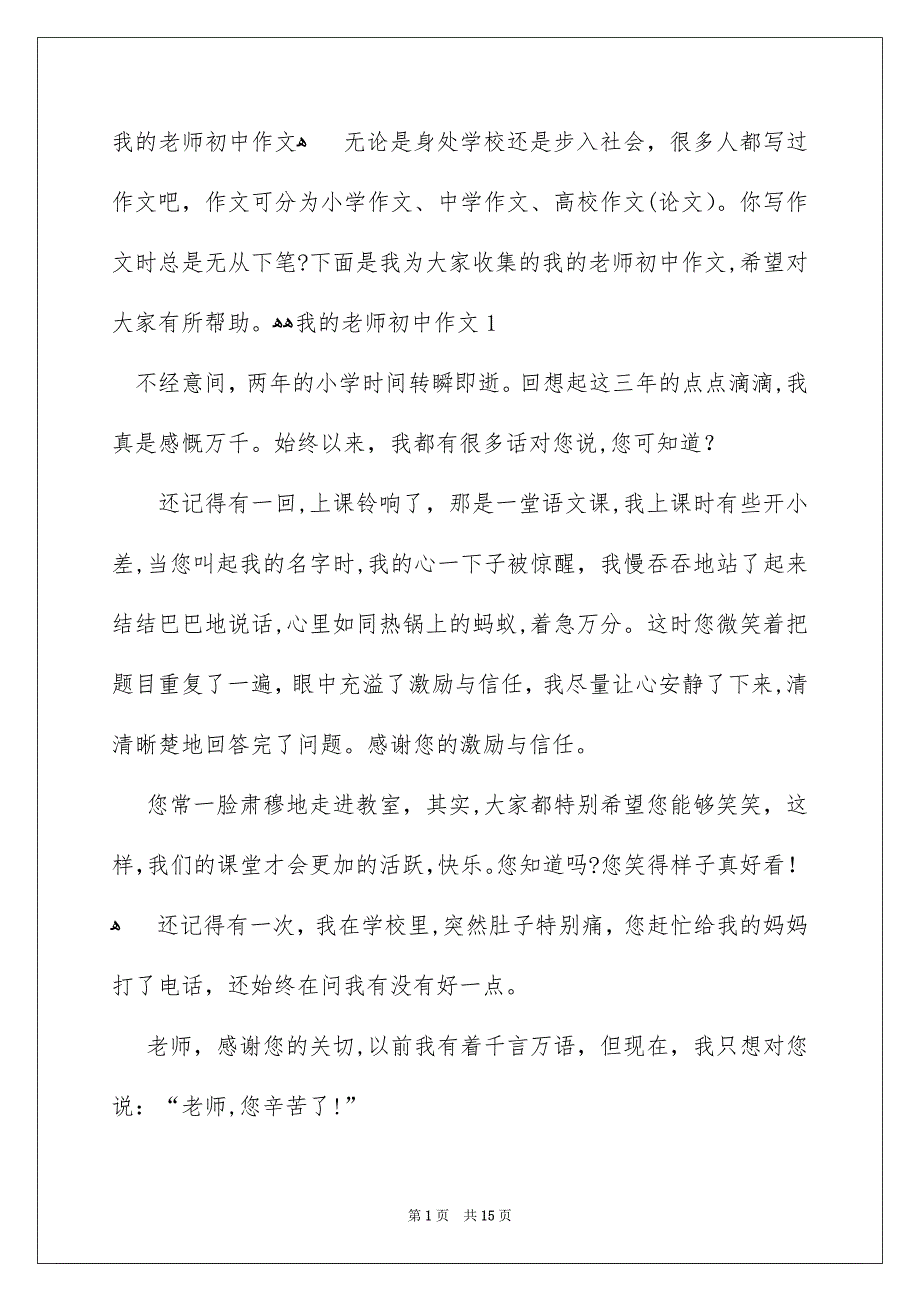 我的老师初中作文ﻫ 无论是身处学校还是步入社会，很多人都写过
作文吧，作文可分为小学作文、中学作文、高校作文(论文）。你写作
文时总是无从下笔?下面是我为大家收集的我的老师初中作文,希望对
大家有所帮助。ﻫﻫ我的老师初中作文1
不经意间，两年的小学时间转瞬即逝。回想起这三年的点点滴滴,我
真是感慨万千。始终以来，我都有很多话对您说,您可知道？
还记得有一回,上课铃响了，那是一堂语文课,我上课时有些开小
差,当您叫起我的名字时,我的心一下子被惊醒，我慢吞吞地站了起来
结结巴巴地说话,心里如同热锅上的蚂蚁,着急万分。这时您微笑着把
题目重复了一遍，眼中充溢了激励与信任，我尽量让心安静了下来,清
清晰楚地回答完了问题。感谢您的激励与信任。
您常一脸肃穆地走进教室，其实,大家都特别希望您能够笑笑，这
样,我们的课堂才会更加的活跃,快乐。您知道吗?您笑得样子真好看！
ﻫ 还记得有一次，我在学校里,突然肚子特别痛，您赶忙给我的妈妈
打了电话，还始终在问我有没有好一点。
老师，感谢您的关切,以前我有着千言万语，但现在，我只想对您
说：“老师,您辛苦了!”
第1页 共15页